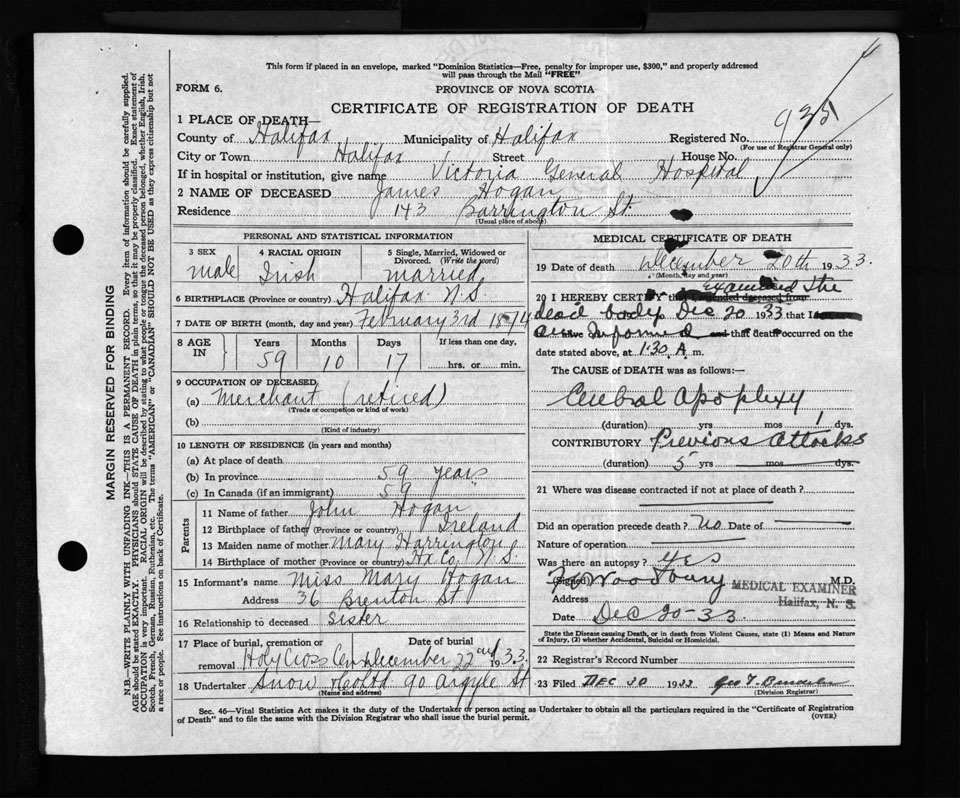 This form if placed in an envelope, marked "Dominion Statistics—Free, penalty for improper use, $300," and properly addressed
will pass through the Mail "FREE"
FORM 6.
PROVINCE OF NOVA SCOTIA
CERTIFICATE OF REGISTRATION OF DEATH
1 PLACE OF DEATH—
County of Halifax Municipality of Halifax Registered No. 935
(For use of Registrar General only)
City or Town Halifax Street House No.
If in hospital or institution, give name Victoria General Hospital
2 NAME OF DECEASED James Hogan
Residence 143 Barrington St.
(Usual place of abode)
PERSONAL AND STATISTICAL INFORMATION
3 SEX
male
4 RACIAL ORIGIN
Irish
5 Single, Married, Widowed or
Divorced. (Write the word)
married
6 BIRTHPLACE (Province or country) Halifax N.S.
7 DATE OF BIRTH (month, day and year) February 3rd 1874
8 AGE IN
Years Months Days If less than one day,
59 10 17 hrs. or min.
9 OCCUPATION OF DECEASED
(a) Merchant (retired)
(Trade or occupation or kind of work)
(b)
(Kind of industry)
10 LENGTH OF RESIDENCE (in years and months)
(a) At place of death
(b) In province 59 years
(c) In Canada (if an immigrant) 59 "
Parents
11 Name of father John Hogan
12 Birthplace of father (Province or country) Ireland
13 Maiden name of mother Mary Harrington
14 Birthplace of mother (Province or country) Hx Co. N.S.
15 Informant's name Miss Mary Hogan
Address 36 Brenton St
16 Relationship to deceased Sister
17 Place of burial, cremation or Date of burial
removal Holy Cross Cem December 22nd 1933.
18 Undertaker Snow & Co Ltd 90 Argyle St
(Name and address)
MEDICAL CERTIFICATE OF DEATH
19 Date of death December 20th 1933.
(Month, day and year)
examined the
20 I HEREBY CERTIFY that I attended deceased from
dead body Dec 20 1933 that I
am Informed and that death occurred on the
date stated above, at 1:30 A m.
The CAUSE of DEATH was as follows:—
Cerebral Apoplexy
(duration) yrs mos 1 dys.
CONTRIBUTORY Previous attacks
(duration) 5 yrs mos dys.
21 Where was disease contracted if not at place of death?
Did an operation precede death? No Date of
Nature of operation
Was there an autopsy? Yes
(Signed) Woodbury M.D.
MEDICAL EXAMINER
Address Halifax, N. S.
Date Dec 20-33.
State the Disease causing Death, or in death from Violent Causes, state (1) Means and Nature
of Injury, (2) whether Accidental, Suicidal or Homicidal.
22 Registrar's Record Number
23 Filed DEC 30 1933
(Division Registrar)
Sec. 46—Vital Statistics Act makes it the duty of the Undertaker or person acting as Undertaker to obtain all the particulars required in the "Certificate of Registration
of Death" and to file the same with the Division Registrar who shall issue the burial permit. (OVER)
MARGIN RESERVED FOR BINDING
N.B.—WRITE PLAINLY WITH UNFADING INK—THIS IS A PERMANENT RECORD. Every item of information should be carefully supplied.
AGE should be stated EXACTLY. PHYSICIANS should STATE CAUSE OF DEATH in plain terms, so that it may be properly classified. Exact statement of
OCCUPATION is very important. RACIAL ORIGIN will be described by stating to what people or tongue the deceased person belonged, whether English, Irish,
Scotch, French, German, Russian, Ruthenian, etc. The terms "AMERICAN" or "CANADIAN" SHOULD NOT BE USED as they express citizenship but not
a race or people. See instructions on back of Certificate.